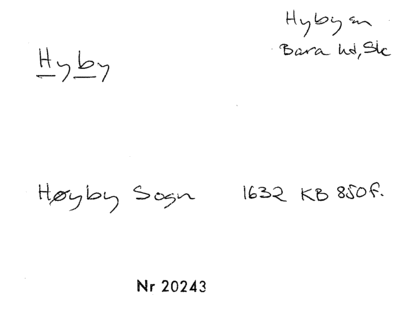 Hyby sn
Hyby
Bara hd, Sk
Høyby Sogn 1632 KB 850f.
Nr 20243